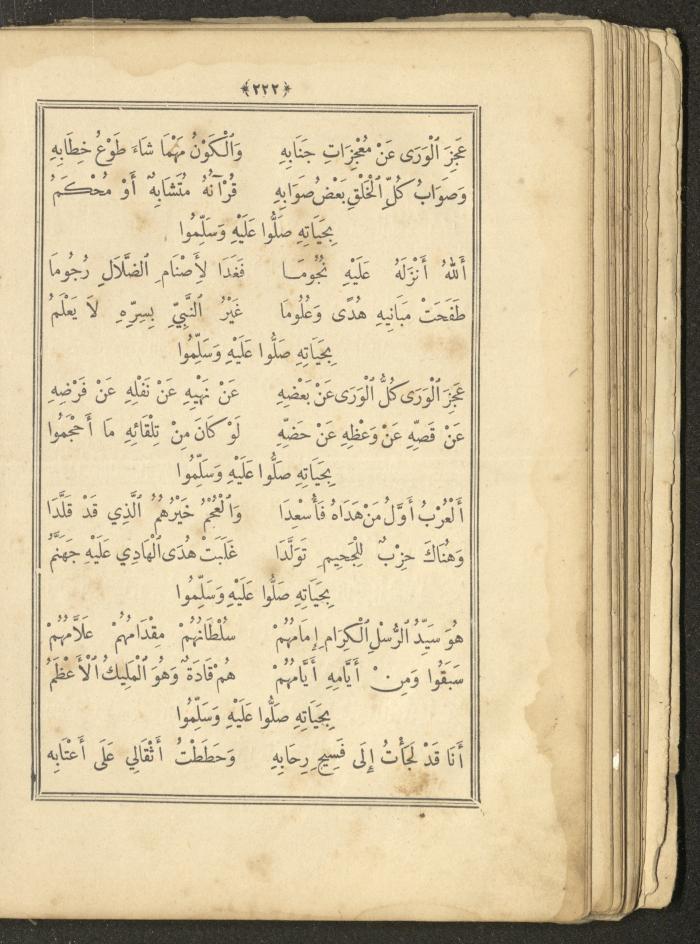 ﴿٢٢٢﴾
عَجِزَ ٱلْوَرَى عَنْ مُعْجِزَاتِ جَنَابِهِ وَٱلْكَوْنُ مَهْمَا شَاءَ طَوْعُ خِطَابِهِ
وَصَوَابُ كُلِّ ٱلْخَلْقِ بَعْضُ صَوَابِهِ قُرْآنُهُ مُتَشَابِهٌ أَوْ مُحْكَمُ
بِحَيَاتِهِ صَلُّوا عَلَيْهِ وَسَلِّمُوا
أَللهُ أَنْزَلَهُ عَلَيْهِ نُجُومَا فَغَدَا لِأَصْنَامِ ٱلضَّلَالِ رُجُومَا
طَفَحَتْ مَبَانِيهِ هُدًى وَعُلُومَا غَيْرُ ٱلنَّبِيِّ بِسِرِّهِ لَا يَعْلَمُ
بِحَيَاتِهِ صَلُّوا عَلَيْهِ وَسَلِّمُوا
عَجِزَ ٱلْوَرَى كُلُّ ٱلْوَرَى عَنْ بَعْضِهِ عَنْ نَهْيِهِ عَنْ نَفْلِهِ عَنْ فَرْضِهِ
عَنْ قَصِّهِ عَنْ وَعْظِهِ عَنْ حَضِّهِ لَوْ كَانَ مِنْ تِلْقَائِهِ مَا أَحْجَمُوا
بِحَيَاتِهِ صَلُّوا عَلَيْهِ وَسَلِّمُوا
أَلْعُرْبُ أَوَّلُ مَنْ هَدَاهُ فَأَسْعَدَا وَٱلْعُجْمُ خَيْرُهُمُ ٱلَّذِي قَدْ قَلَّدَا
وَهُنَاكَ حِزْبٌ لِلْجَحِيمِ تَوَلَّدَا غَلَبَتْ هُدَى ٱلْهَادِي عَلَيْهِ جَهَنَّمُ
بِحَيَاتِهِ صَلُّوا عَلَيْهِ وَسَلِّمُوا
هُوَ سَيِّدُ ٱلرُّسْلِ ٱلْكِرَامِ إِمَامُهُمْ سُلْطَانُهُمْ مِقْدَامُهُمْ عَلَّامُهُمْ
سَبَقُوا وَمِنْ أَيَّامِهِ أَيَّامُهُمْ هُمْ قَادَةٌ وَهُوَ ٱلْمَلِيكُ ٱلْأَعْظَمُ
بِحَيَاتِهِ صَلُّوا عَلَيْهِ وَسَلِّمُوا
أَنَا قَدْ لَجَأْتُ إِلَى فَسِيحِ رِحَابِهِ وَحَطَطْتُ أَثْقَالِي عَلَى أَعْتَابِهِ